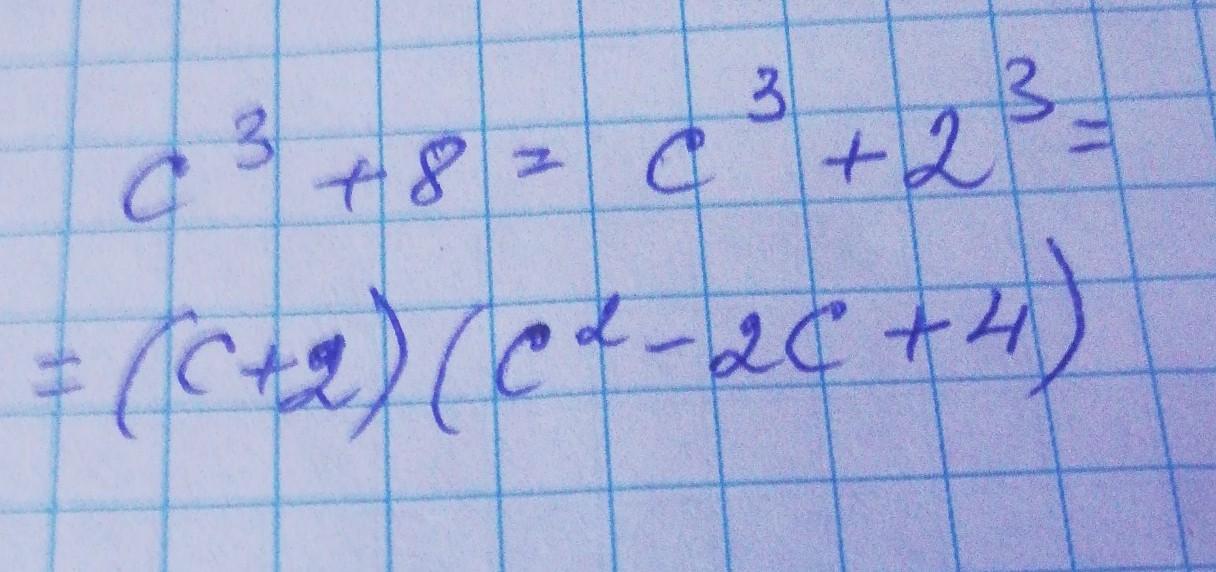 c³ + 8 = c³ + 2³ =
= (c+2)(c² - 2c + 4)